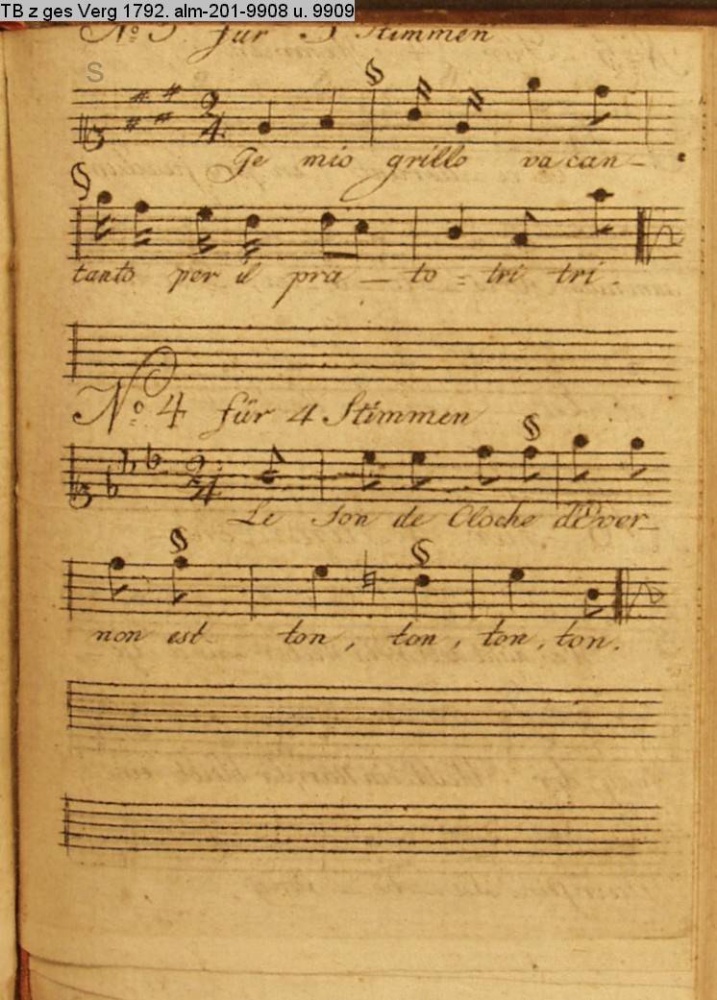 TB z ges Verg 1792. alm-201-9908 u. 9909
für Stimmen
S
2/4
Ge mio grillo va can-
tanto per il pra - to = tri tri
No. 4 für 4 Stimmen
2/4
Le Son de Cloche de ver-
non est ton, ton, ton, ton.